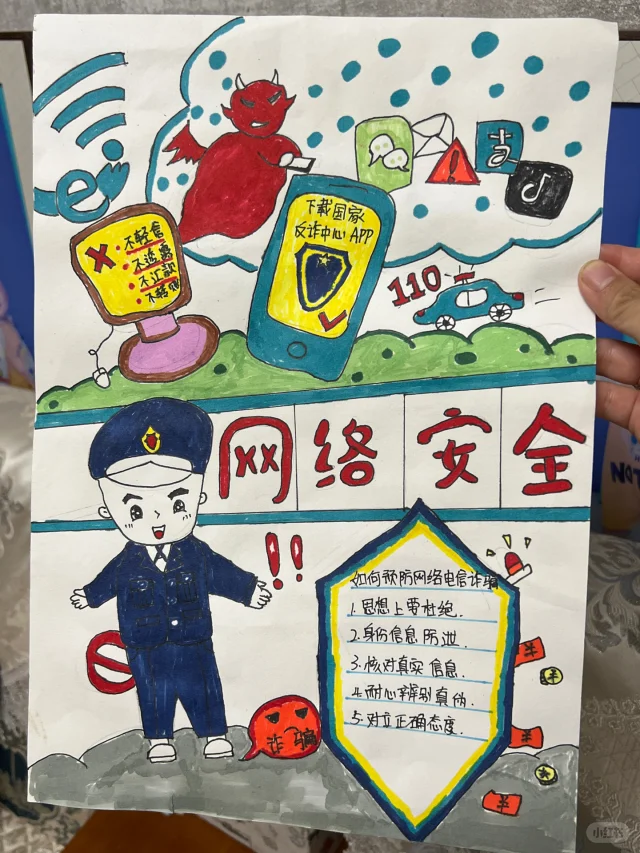 下载国家
反诈中心APP
支
不轻信
不透露
不汇款
不转账
110
网络安全
!!
如何预防网络电信诈骗
1.思想上要杜绝.
2.身份信息防泄.
3.核对真实信息.
4.耐心辨别真伪.
5.对立正确态度.
诈骗
小红书